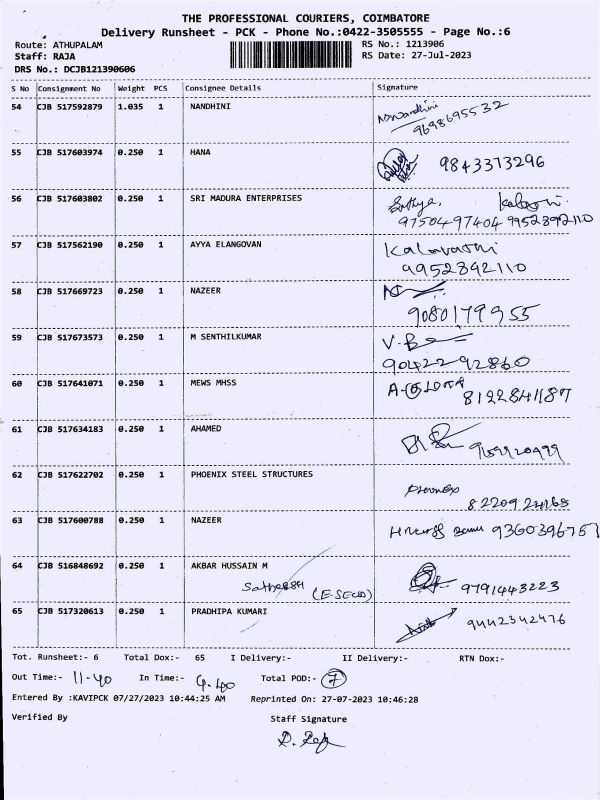 THE PROFESSIONAL COURIERS, COIMBATORE
Delivery Runsheet - PCK - Phone No.:0422-3505555 - Page No.:6
Route: ATHUPALAM RS No.: 1213906
Staff: RAJA RS Date: 27-Jul-2023
DRS No.: DCJB121390606
S No Consignment No Weight PCS Consignee Details Signature
54 CJB 517592879 1.035 1 NANDHINI Nandhini
9698695532
55 CJB 517603974 0.250 1 HANA 9843373296
56 CJB 517603802 0.250 1 SRI MADURA ENTERPRISES Sathya,
9750497404 9952892110
57 CJB 517562190 0.250 1 AYYA ELANGOVAN Kalavathi
9952892110
58 CJB 517669723 0.250 1 NAZEER
9080179955
59 CJB 517673573 0.250 1 M SENTHILKUMAR
9042292860
60 CJB 517641071 0.250 1 MEWS MHSS
61 CJB 517634183 0.250 1 AHAMED
62 CJB 517622702 0.250 1 PHOENIX STEEL STRUCTURES
63 CJB 517600788 0.250 1 NAZEER
64 CJB 516848692 0.250 1 AKBAR HUSSAIN M
9791443223
65 CJB 517320613 0.250 1 PRADHIPA KUMARI 9442342476
Tot. Runsheet:- 6 Total Dox:- 65 I Delivery:- II Delivery:- RTN Dox:-
Out Time:- 11-40 In Time:- 4.40 Total POD:- 7
Entered By :KAVIPCK 07/27/2023 10:44:25 AM Reprinted On: 27-07-2023 10:46:28
Verified By Staff Signature